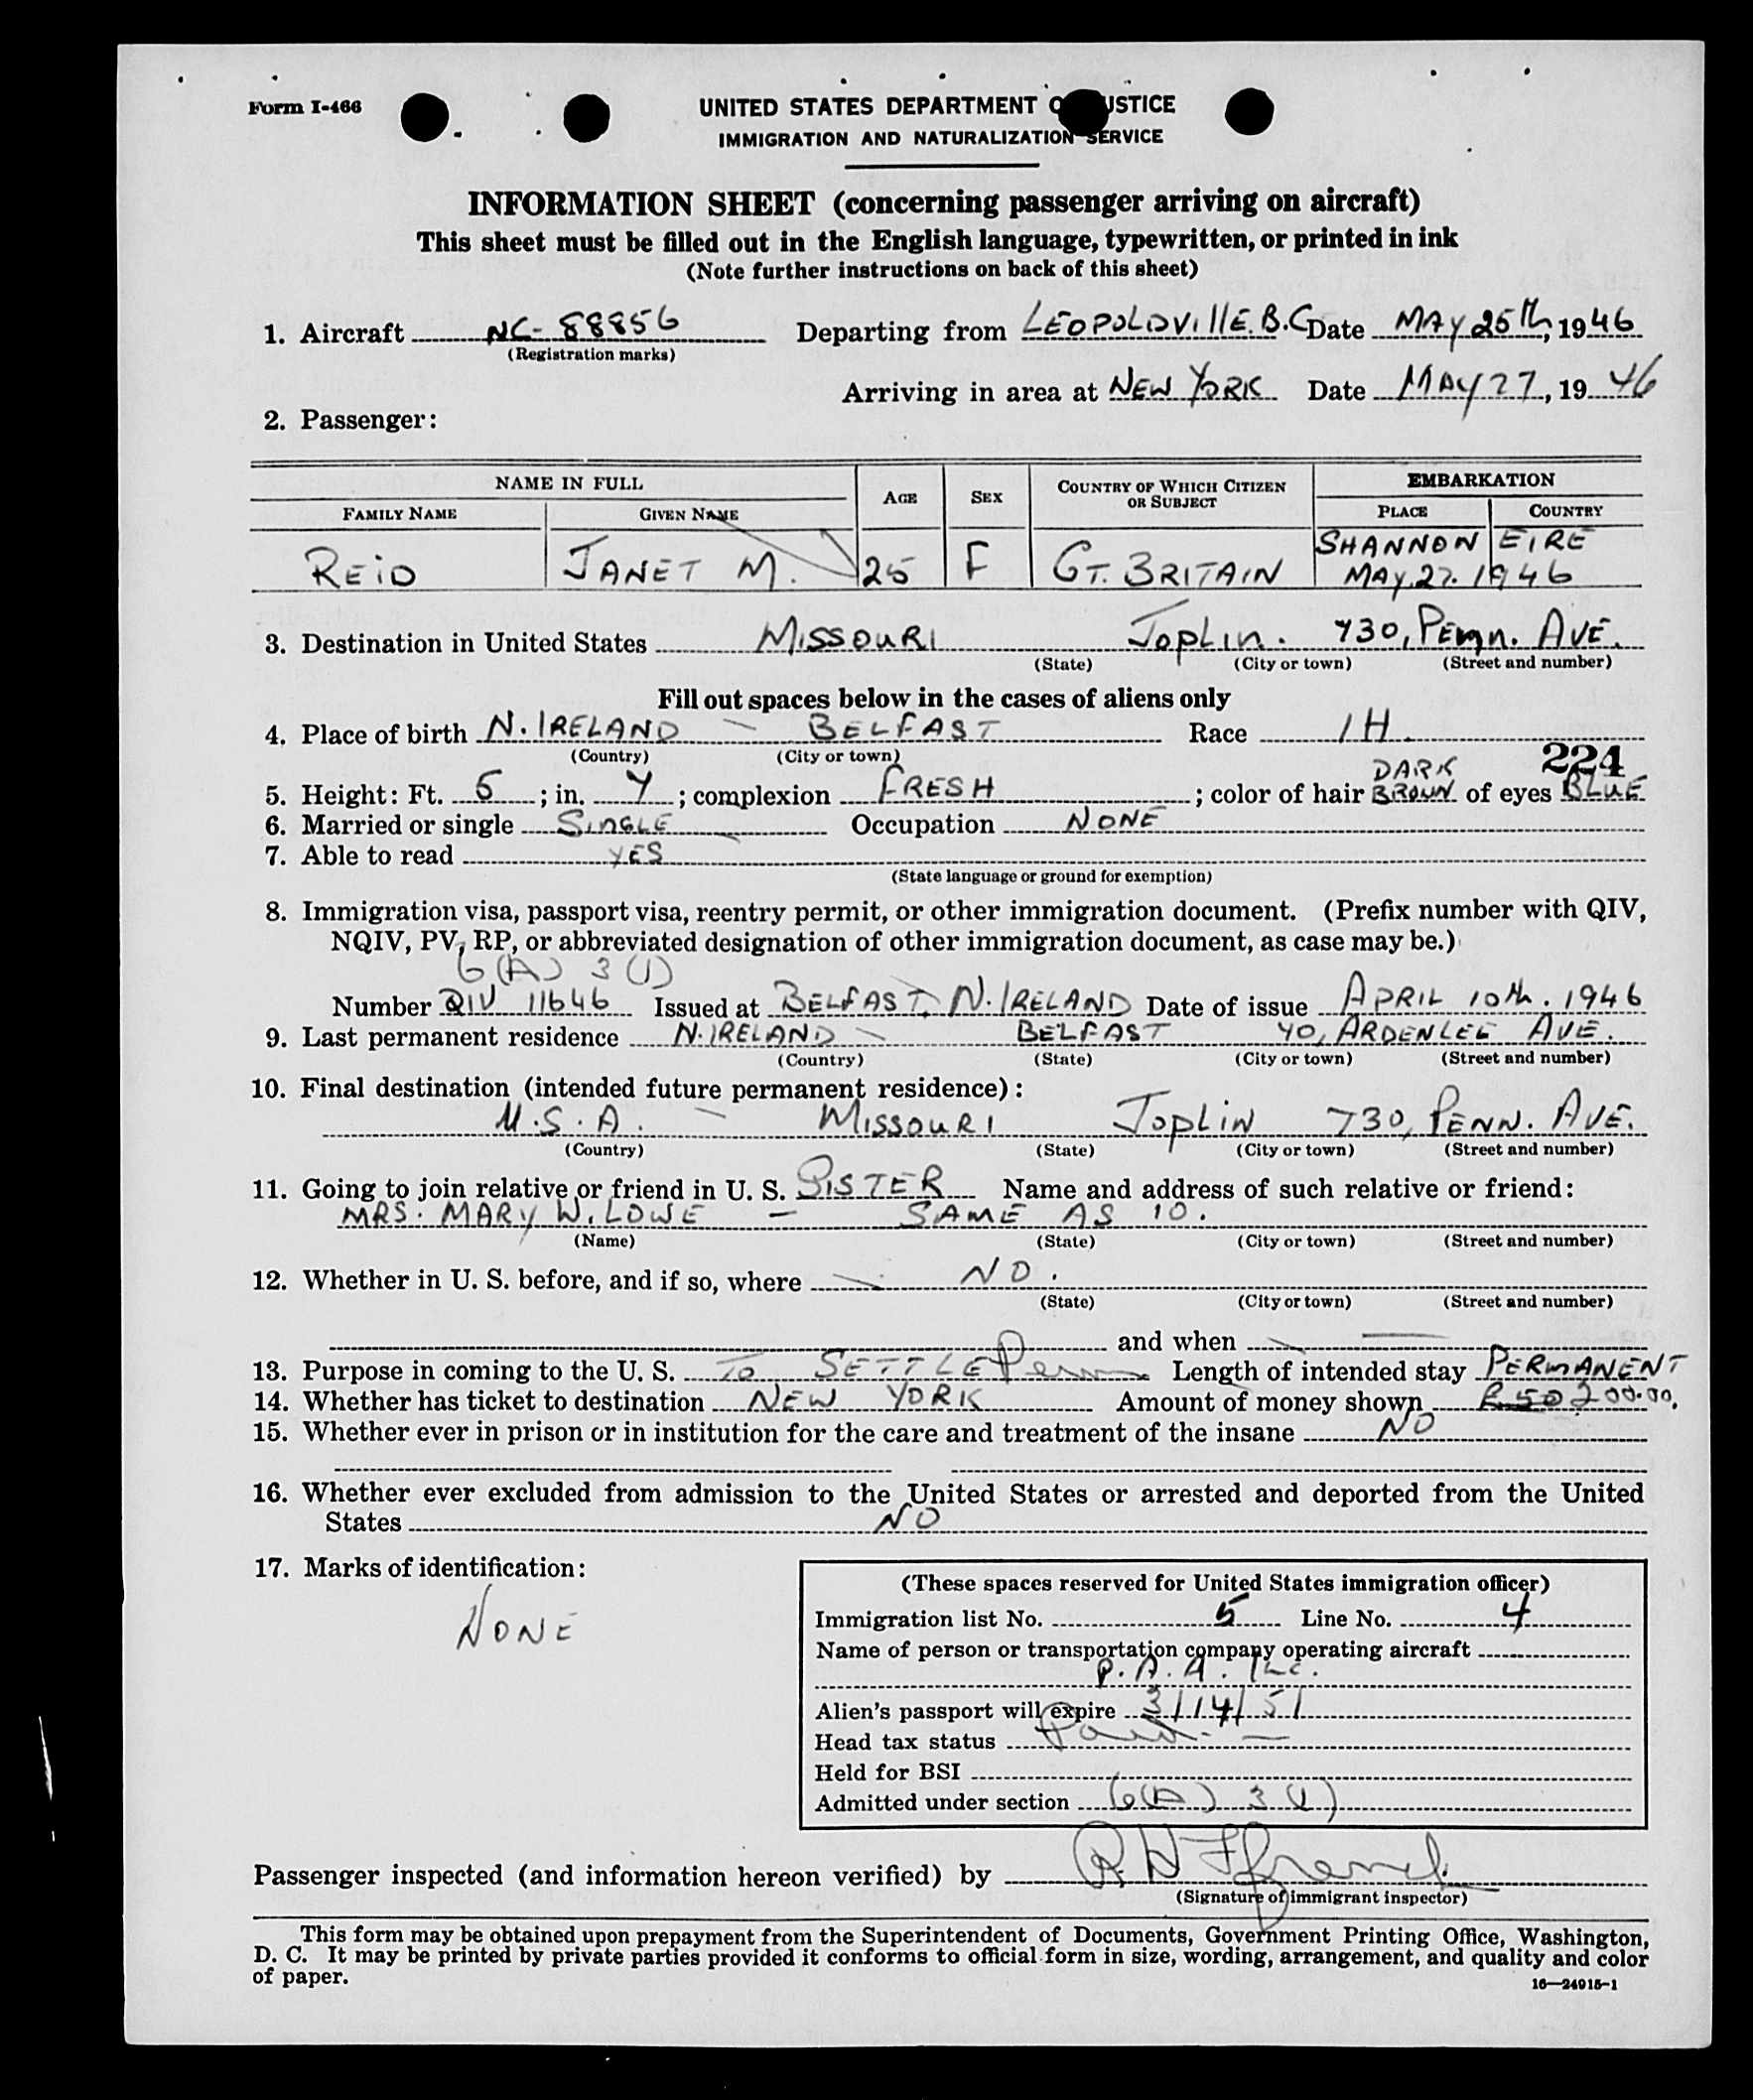 Form I-466
UNITED STATES DEPARTMENT O USTICE
IMMIGRATION AND NATURALIZATION SERVICE
INFORMATION SHEET (concerning passenger arriving on aircraft)
This sheet must be filled out in the English language, typewritten, or printed in ink
(Note further instructions on back of this sheet)
1. Aircraft NC-88856 Departing from LEOPOLDVILLE. B.C Date MAY 25th, 1946
(Registration marks)
Arriving in area at NEW YORK Date MAY 27, 1946
2. Passenger:
NAME IN FULL AGE SEX COUNTRY OF WHICH CITIZEN OR SUBJECT EMBARKATION
FAMILY NAME GIVEN NAME PLACE COUNTRY
REID JANET M. 25 F GT. BRITAIN SHANNON EIRE
MAY.27. 1946
3. Destination in United States MISSOURI JOPLIN. 730, PENN. AVE.
(State) (City or town) (Street and number)
Fill out spaces below in the cases of aliens only
4. Place of birth N. IRELAND - BELFAST Race IH.
(Country) (City or town)
224
DARK
5. Height: Ft. 5; in. 4; complexion FRESH; color of hair BROWN of eyes BLUE
6. Married or single SINGLE Occupation NONE
7. Able to read YES
(State language or ground for exemption)
8. Immigration visa, passport visa, reentry permit, or other immigration document. (Prefix number with QIV,
NQIV, PV, RP, or abbreviated designation of other immigration document, as case may be.)
6(A) 3(1)
Number QIV 11646 Issued at BELFAST, N. IRELAND Date of issue APRIL 10th. 1946
9. Last permanent residence N. IRELAND BELFAST 40, ARDENLEE AVE.
(Country) (State) (City or town) (Street and number)
10. Final destination (intended future permanent residence):
U.S.A. - MISSOURI JOPLIN 730, PENN. AVE.
(Country) (State) (City or town) (Street and number)
11. Going to join relative or friend in U. S. SISTER Name and address of such relative or friend:
MRS. MARY W. LOWE - SAME AS 10.
(Name) (State) (City or town) (Street and number)
12. Whether in U. S. before, and if so, where NO.
(State) (City or town) (Street and number)
and when —
13. Purpose in coming to the U. S. TO SETTLE Perm Length of intended stay PERMANENT
14. Whether has ticket to destination NEW YORK Amount of money shown £50 200.00.
15. Whether ever in prison or in institution for the care and treatment of the insane NO
16. Whether ever excluded from admission to the United States or arrested and deported from the United
States NO
17. Marks of identification:
NONE
(These spaces reserved for United States immigration officer)
Immigration list No. 5 Line No. 4
Name of person or transportation company operating aircraft
P. A. A. Inc.
Alien's passport will expire 3/14/51
Head tax status Paid. —
Held for BSI
Admitted under section 6(A) 3(1)
Passenger inspected (and information hereon verified) by
(Signature of immigrant inspector)
This form may be obtained upon prepayment from the Superintendent of Documents, Government Printing Office, Washington,
D. C. It may be printed by private parties provided it conforms to official form in size, wording, arrangement, and quality and color
of paper.
16—24915-1